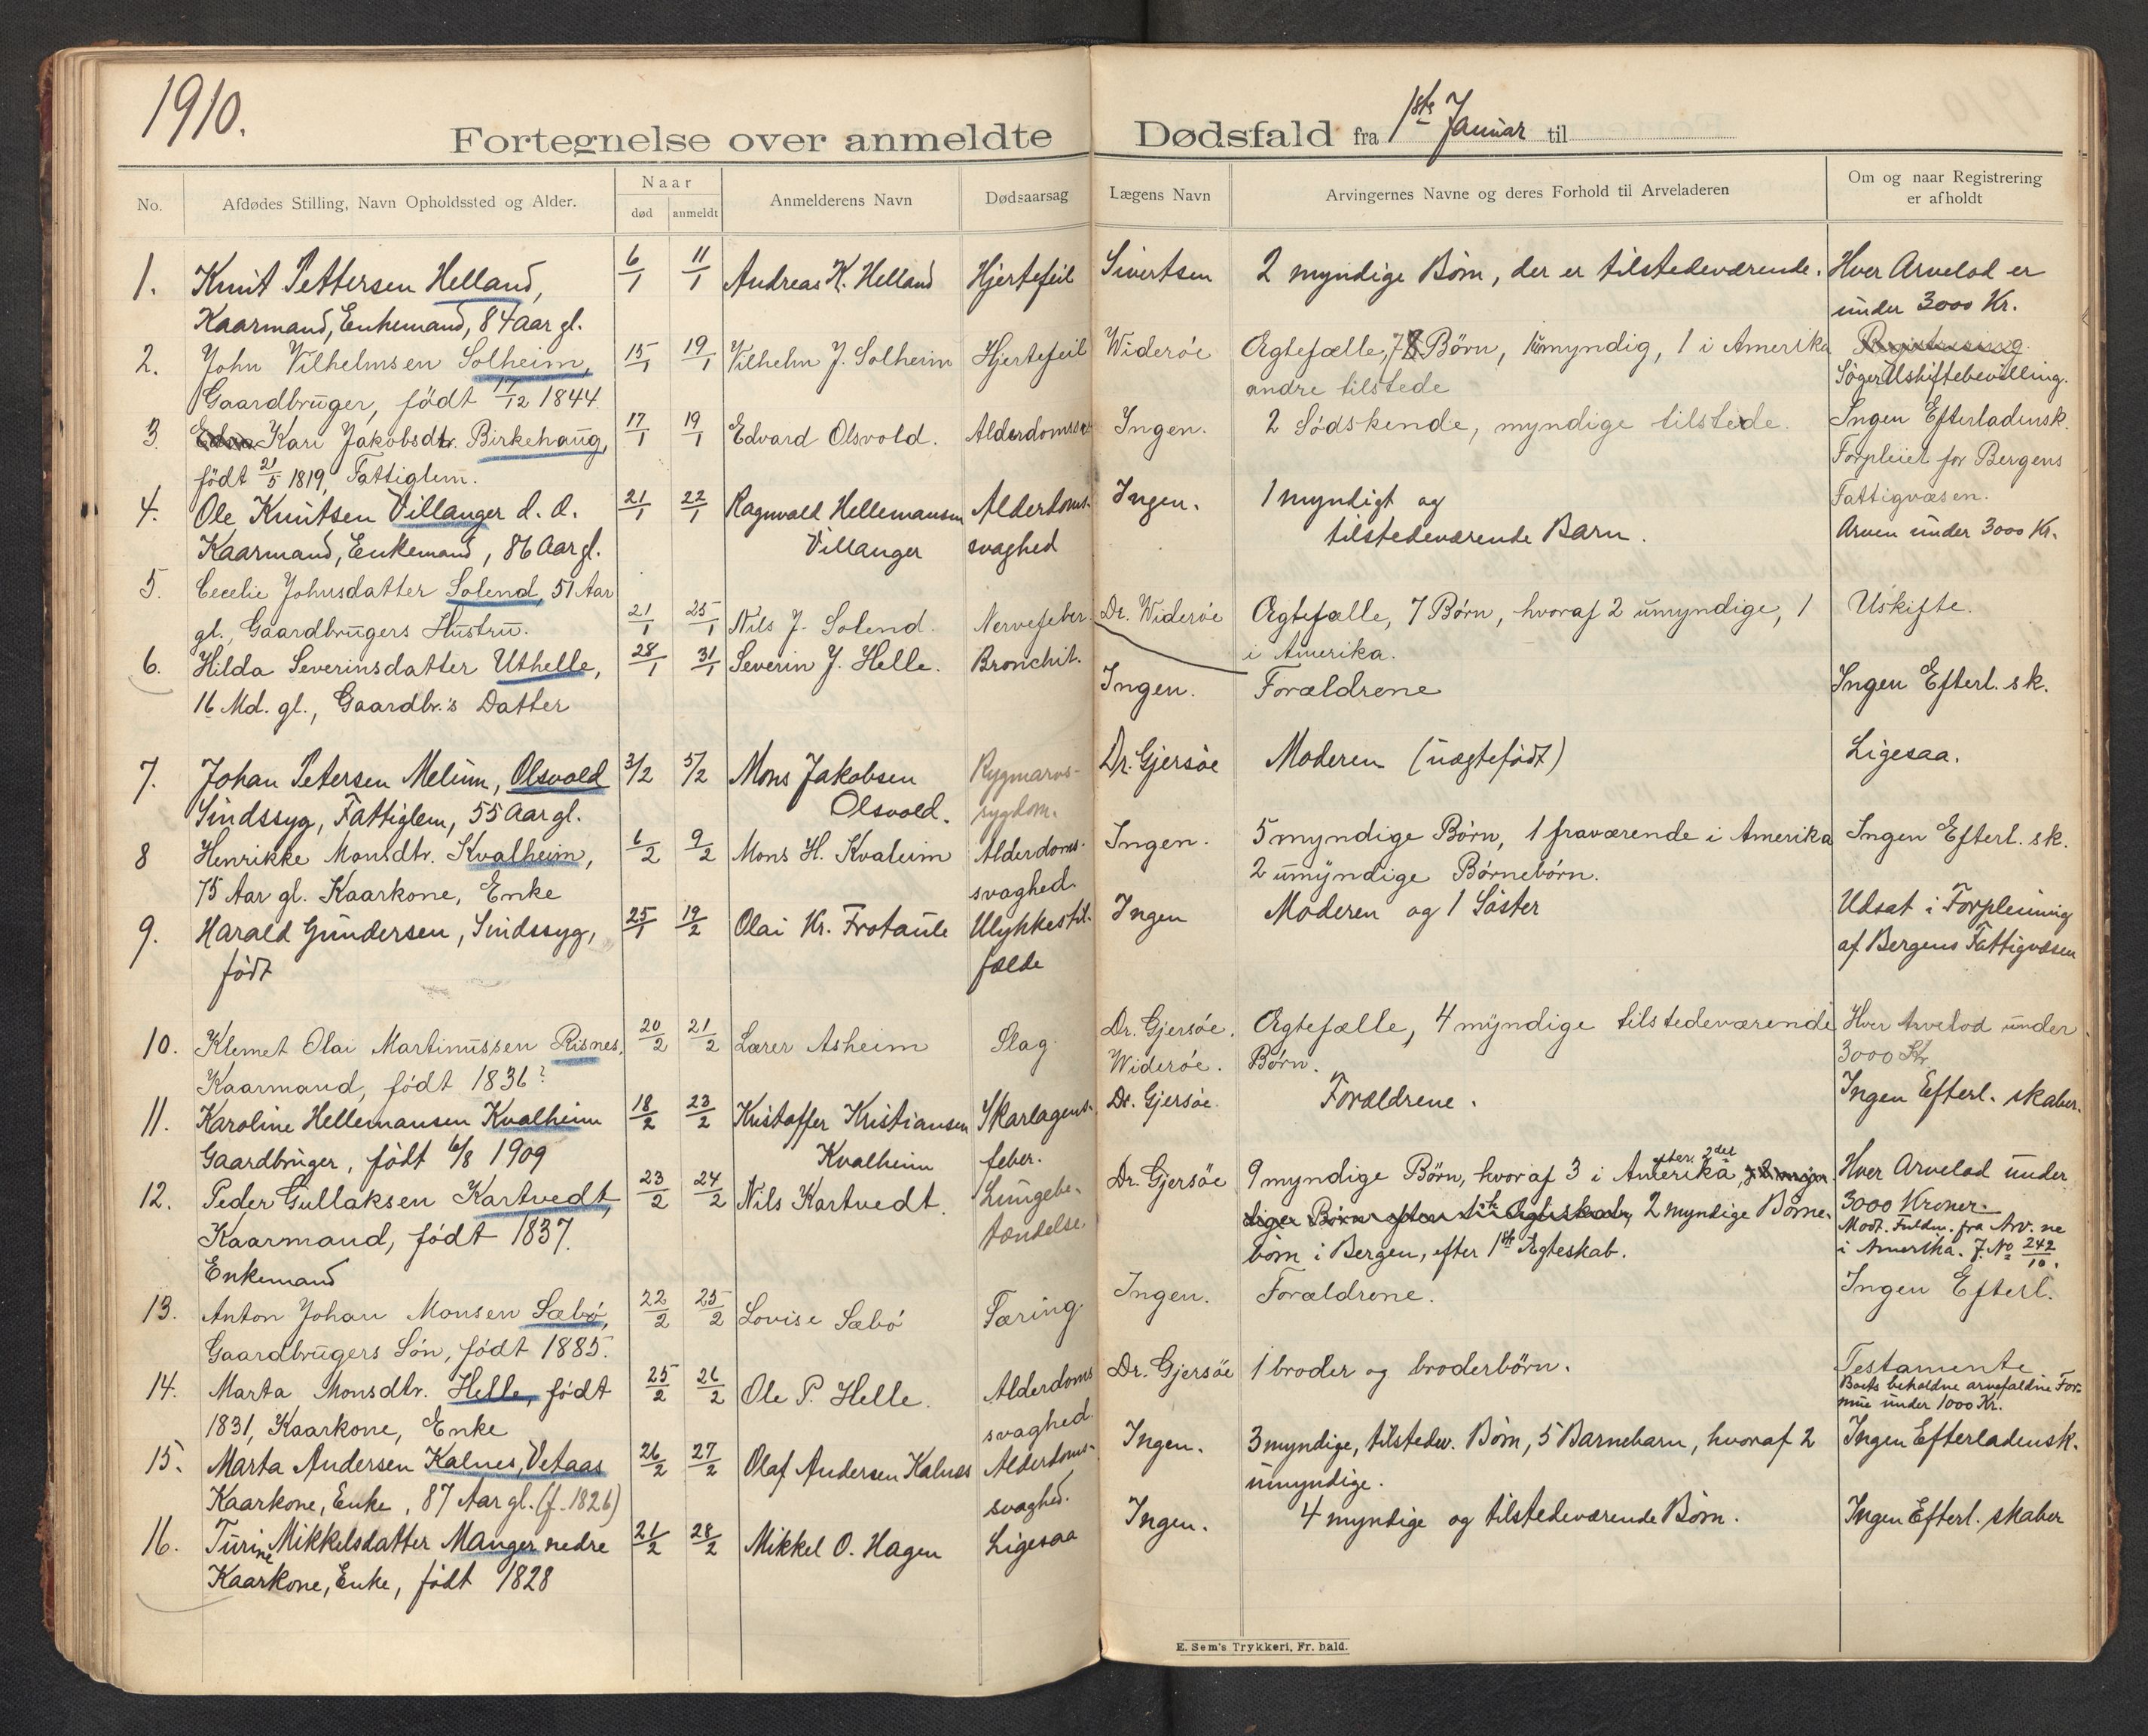 1910.
Fortegnelse over anmeldte Dødsfald fra 1ste Januar til
No.
Afdødes Stilling, Navn Opholdssted og Alder.
Naar
død
anmeldt
Anmelderens Navn
Dødsaarsag
Lægens Navn
Arvingernes Navne og deres Forhold til Arveladeren
Om og naar Registrering
er afholdt
1. Knut Pettersen Helland, 6/1 11/1 Andreas K. Helland Hjertefeil Sivertsen 2 myndige Børn, der er tilstedeværende. Hver Arvelod er
Kaarmand, Enkemand, 84 Aar gl. under 3000 Kr.
2. John Vilhelmsen Solheim, 15/1 19/1 Vilhelm J. Solheim Hjertefeil Widerøe Ægtefælle, 7 Børn, 1 umyndig, 1 i Amerika Registrering
Gaardbruger, født 17/12 1844 andre tilstede Søger Uskiftebevilling.
3. Kari Jakobsdtr. Birkehaug, 17/1 19/1 Edvard Olsvold. Alderdomssv. Ingen. 2 Sødskende, myndige tilstede. Ingen Efterladensk.
født 21/5 1819, Fattiglem. Forpleiet for Bergens
Fattigvæsen.
4. Ole Knutsen Villanger d. o. 21/1 22/1 Ragnvald Hellemansen Alderdoms- Ingen. 1 myndigt og
Kaarmand, Enkemand, 86 Aar gl. Villanger svaghed tilstedeværende Barn. Arven under 3000 Kr.
5. Cecelie Johnsdatter Solend, 51 Aar
gl., Gaardbrugers Hustru. 21/1 25/1 Nils J. Solend. Nervefeber Dr. Widerøe Ægtefælle, 7 Børn, hvoraf 2 umyndige, 1 Uskifte.
i Amerika.
6. Hilda Severinsdatter Uthelle, 28/1 31/1 Severin J. Helle. Bronchit. Ingen. Forældrene Ingen Efterl. sk.
16 Md. gl., Gaardbr.'s Datter
7. Johan Petersen Melum, Olsvold 3/2 5/2 Mons Jakobsen Rygmarvs- Dr. Gjersøe Moderen (uægtefødt) Ligesaa.
Sindssyg, Fattiglem, 55 Aar gl. Olsvold. sygdom.
8 Henrikke Monsdtr. Kvalheim, 6/2 9/2 Mons H. Kvaleim Alderdoms- Ingen. 5 myndige Børn, 1 fraværende i Amerika Ingen Efterl. sk.
75 Aar gl. Kaarkone, Enke svaghed. 2 umyndige Børnebørn.
9. Harald Gundersen, Sindssyg, 25/1 19/2 Olai Kr. Frotaule Ulykkestil- Ingen Moderen og 1 Søster Udsat i Forpleining
født fælde af Bergens Fattigvæsen
10. Klemet Olai Martinussen Risnes, 20/2 21/2 Lærer Asheim Slag Dr. Gjersøe. Ægtefælle, 4 myndige tilstedeværende Hver Arvelod under
Kaarmand, født 1836? Widerøe. Børn. 3000 Kr.
11. Karoline Hellemansen Kvalheim 18/2 23/2 Kristoffer Kristiansen Skarlagens- Dr. Gjersøe. Forældrene. Ingen Efterl. skaber.
Gaardbruger, født 6/8 1909 Kvalheim feber.
12. Peder Gullaksen Kartvedt, 23/2 24/2 Nils Kartvedt. Lungebe- Dr. Gjersøe 9 myndige Børn, hvoraf 3 i Amerika efter 2det Hver Arvelod under
Kaarmand, født 1837. tændelse. diger Børn efter 1ste Ægteskab, 2 myndige Børne- 3000 Kroner.
Enkemand børn i Bergen, efter 1ste Ægteskab. Modt. Fuldm. fra Arv. ne
i Amerika. J. No 242/10.
13. Anton Johan Monsen Sæbø, 22/2 25/2 Lovise Sæbø Tæring Ingen. Forældrene. Ingen Efterl.
Gaardbrugers Søn, født 1885.
14. Marta Monsdtr. Helle, født 25/2 26/2 Ole P. Helle. Alderdoms Dr. Gjersøe 1 broder og broderbørn. Testamente
1831, Kaarkone, Enke svaghed. Boets beholdne arvefaldne For-
mue under 1000 Kr.
15. Marta Andersen Kalnes, Vetaas 26/2 27/2 Olaf Andersen Kalnes Alderdoms- Ingen. 3 myndige, tilstedev. Børn, 5 Barnebarn, hvoraf 2 Ingen Efterladensk.
Kaarkone, Enke, 87 Aar gl. (f. 1826) svaghed. umyndige.
16. Turine Mikkelsdatter Manger nedre 21/2 28/2 Mikkel O. Hagen Ligesaa Ingen. 4 myndige og tilstedeværende Børn. Ingen Efterl. skaber
Kaarkone, Enke, født 1828
E. Sem's Trykkeri, Fr. hald.